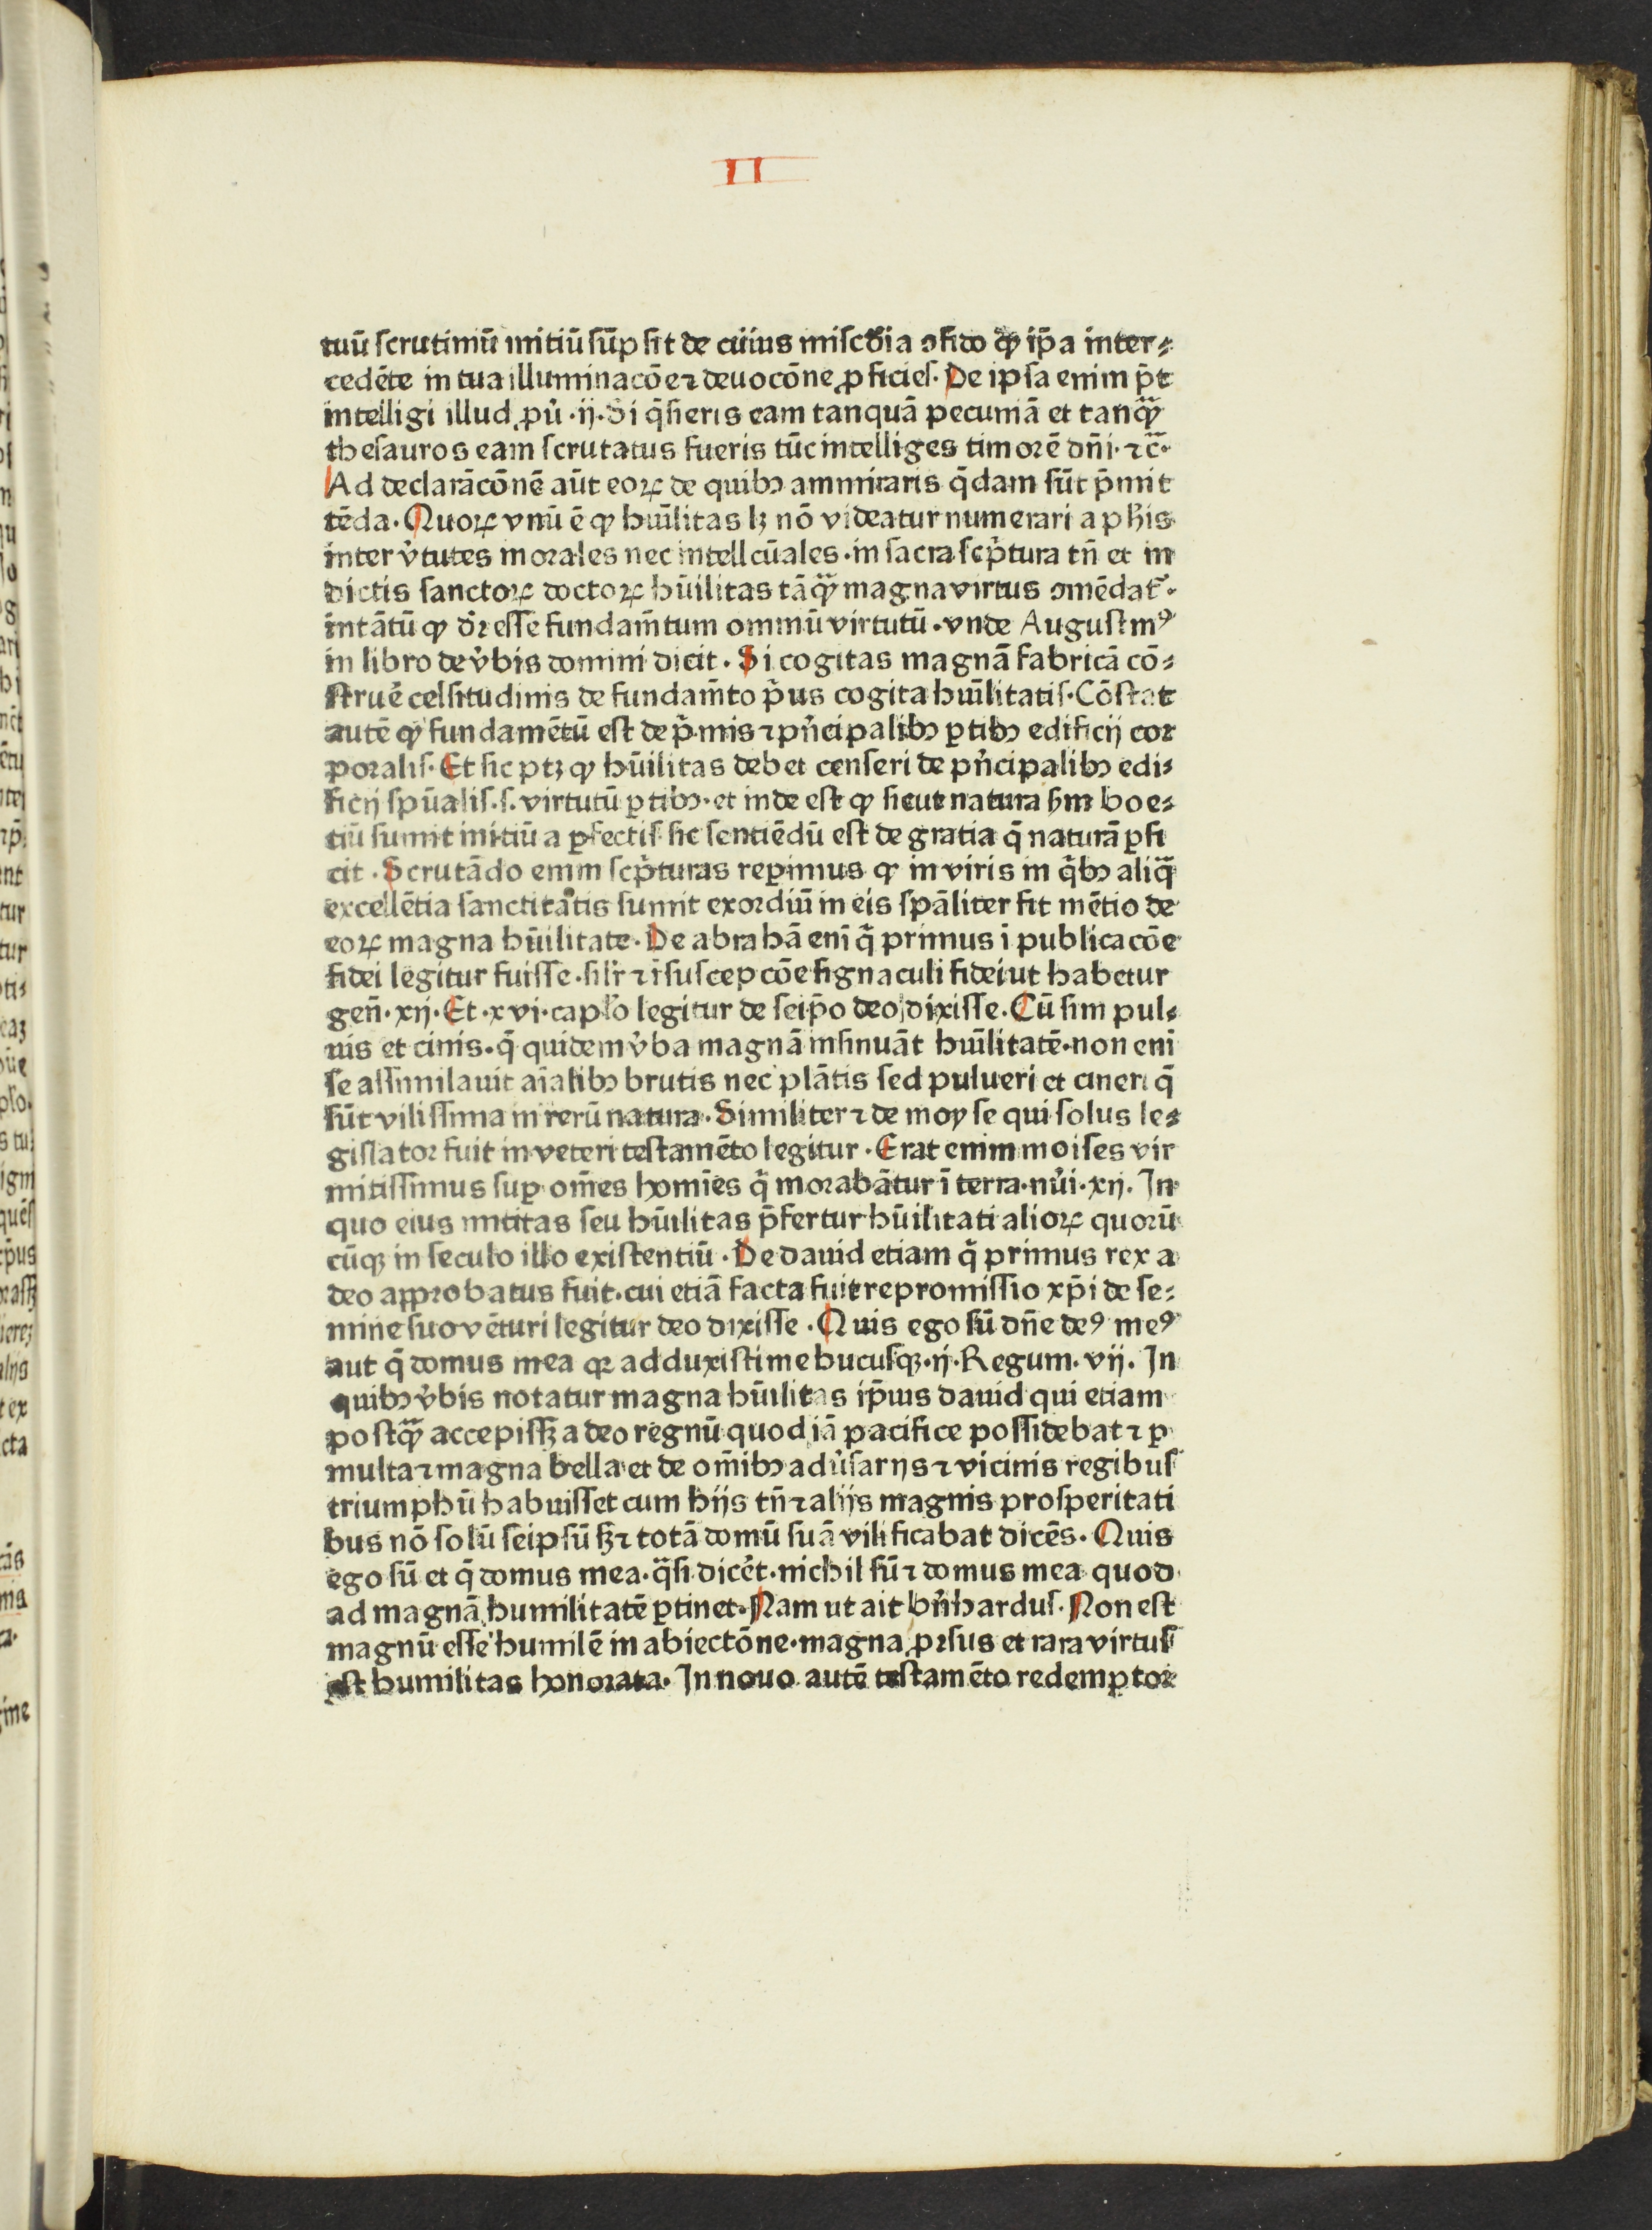 II
tuū ſcrutiniū initiū ſūpſit de cuius miſcd̾ia ꝯfido ꝙ ip̄a inter⸗
cedēte in tua illuminacōe ⁊ deuocōne ꝓficies. De ipſa enim p̄t
intelligi illud ꝓuˀ .ij. Si q̄ſieris eam tanquā pecuniā et tanqꝫ̄
theſauros eam ſcrutatus fueris tūc intelliges timorē dn̄i .⁊c̄.
Ad declarācōnē aūt eoꝝ de quibꝫ ammiraris q̄dam ſūt p̄mit
tēda. Quoꝝ vnū ē ꝙ hūilitas lꝫ nō videatur numerari a ph̄is
inter v̾tutes morales nec intellcūales .in ſacra ſcp̄tura tn̄ et in
dictis ſanctoꝝ doctoꝝ hūilitas tāqꝫ̄ magna virtus ꝯmēdat᷑.
intātū ꝙ dr̄ eſſe fundam̄tum omniū virtutū .vnde Auguſtinꝰ
in libro de v̾bis domini dicit. Si cogitas magnā fabricā cō⸗
ſtruē celſitudinis de fundam̄to p̄us cogita hūilitatis. Cōſtat
autē ꝙ fundamētū eſt de p̄mis ⁊ pn̄cipalibꝫ ꝑtibꝫ edificij cor
poralis. Et ſic ptꝫ ꝙ hūilitas debet cenſeri de pn̄cipalibꝫ edi⸗
ficij ſpūalis .ſ. virtutū ꝑtibꝫ .et inde eſt ꝙ ſicut natura ẜm boe⸗
tiū ſumit initiū a ꝑfectis ſic ſentiēdū eſt de gratia q̄ naturā ꝑfi
cit. Scrutādo enim ſcp̄turas reꝑimus ꝙ in viris in q̄bꝫ aliqꝫ̄
excellētia ſanctitātis ſumit exordiū in eis ſpāliter fit mētio de
eoꝝ magna hūilitate. De abrahā enī q̄ primus ī publicacōe
fidei legitur fuiſſe .ſilr̄ ⁊ ī ſuſcepcōe ſignaculi fidei ut habetur
gen̄. xij. Et .xvi. caplō legitur de ſeip̄o deo dixiſſe. Cū ſim pul⸗
uis et cinis. q̄ quidem v̾ba magnā inſinuāt hūilitatē. non enī
ſe aſſimilauit aīalibꝫ brutis nec plātis ſed pulueri et cineri q̄
ſūt viliſſima in rerū natura. Similiter ⁊ de moyſe qui ſolus le⸗
giſlator fuit in veteri teſtamēto legitur. Erat enim moiſes vir
mitiſſimus ſuꝑ om̄es homīes q̄ morabātur ī terra. nuˀi. xij. In
quo eius mititas ſeu hūilitas p̄fertur hūilitati alioꝝ quorū
cūqꝫ in ſeculo illo exiſtentiū. De dauid etiam q̄ primus rex a
deo approbatus fuit. cui etiā facta fuit repromiſſio xp̄i de ſe⸗
mine ſuo vēturi legitur deo dixiſſe. Quis ego ſū dn̄e deꝰ meꝰ
aut q̄ domus mea qꝛ adduxiſti me hucuſqꝫ .ij. Regum. vij. In
quibꝫ v̾bis notatur magna hūilitas ip̄ius dauid qui etiam
poſtqꝫ̄ accepiſſꝫ a deo regnū quod iā pacifice poſſidebat ⁊ ꝑ
multa ⁊ magna bella et de om̄ibꝫ aduˀſarijs ⁊ vicinis regibus
triumphū habuiſſet cum hijs tn̄ ⁊ alijs magnis proſperitati
bus nō ſolū ſeipſū ſꝫ ⁊ totā domū ſuā vilificabat dicēs. Quis
ego ſū et q̄ domus mea. q̄ſi dicēt. nichil ſū ⁊ domus mea quod
ad magnā humilitatē ꝑtinet. Nam ut ait bn̄hardus. Non eſt
magnū eſſe humilē in abiectōne. magna ꝓrſus et rara virtus
eſt humilitas honorata. In nouo autē teſtamēto redemptor